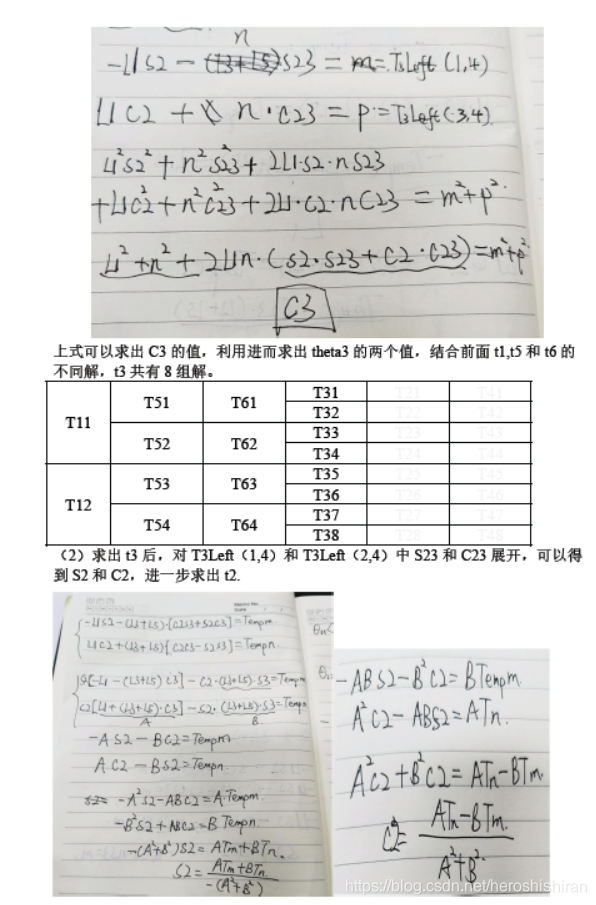 n
-L1S2 - (L3+L5)S23 = m = T3Left (1,4)
L1C2 + n·C23 = p = T3Left (3,4)
L1²S2² + n²S23² + 2L1·S2·nS23
+L1C2² + n²C23² + 2L1·C2·nC23 = m²+p².
L1²+n²+2L1n·(S2·S23+C2·C23)=m²+p²
C3
上式可以求出 C3 的值，利用进而求出 theta3 的两个值，结合前面 t1,t5 和 t6 的
不同解，t3 共有 8 组解。
T11 T51 T61 T31 T21 T41
T32 T22 T42
T52 T62 T33 T23 T43
T34 T24 T44
T12 T53 T63 T35 T25 T45
T36 T26 T46
T54 T64 T37 T27 T47
T38 T28 T48
（2）求出 t3 后，对 T3Left（1,4）和 T3Left（2,4）中 S23 和 C23 展开，可以得
到 S2 和 C2，进一步求出 t2.
-L1S2-(L3+L5)[C2S3+S2C3]=Tempm
L1C2+(L3+L5)[C2C3-S2S3]=Tempn
S2[-L1-(L3+L5)C3]-C2·(L3+L5)·S3=Tempm
C2[L1+(L3+L5)·C3]-S2·(L3+L5)·S3=Tempn
A B
-AS2-BC2=Tempm
AC2-BS2=Tempn.
-A²S2-ABC2=A·Tempm
-B²S2+ABC2=B Tempn.
-(A²+B²)S2=ATm+BTn.
S2=ATm+BTn/-(A²+B²)
-ABS2-B²C2=BTempm.
A²C2-ABS2=ATn.
A²C2+B²C2=ATn-BTm.
C2=ATn-BTm./A²+B²
https://blog.csdn.net/heroshishiran